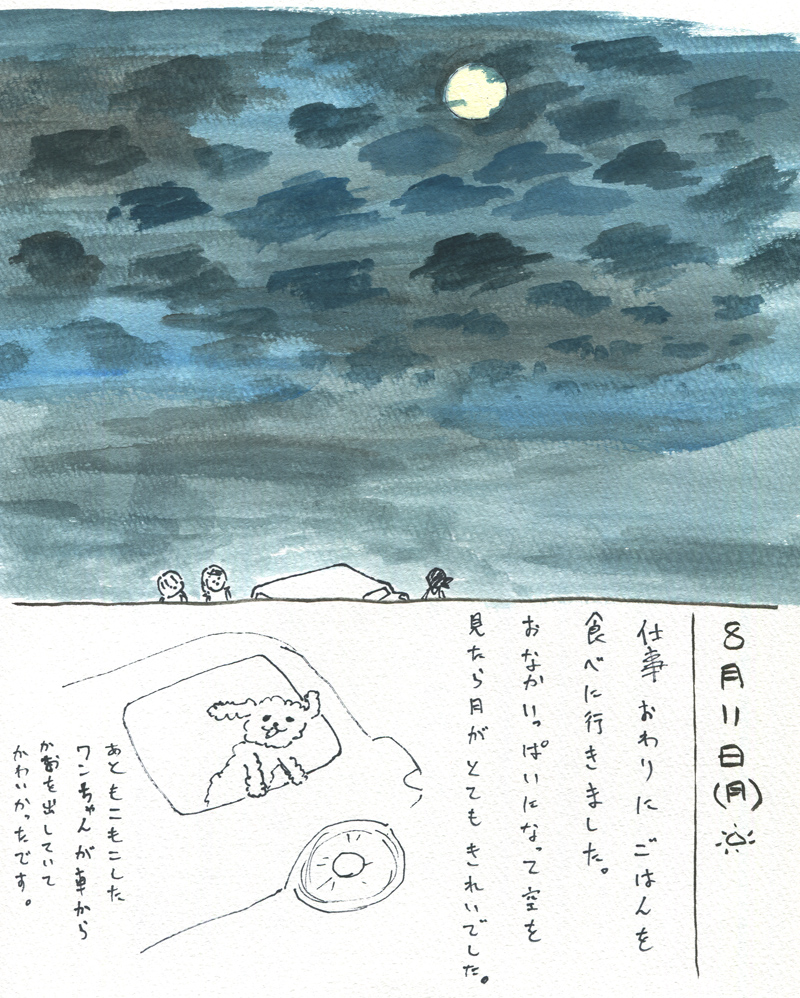 8月11日(月)
仕事おわりにごはんを
食べに行きました。
おなかいっぱいになって空を
見たら月がとてもきれいでした。
あともこもこした
ワンちゃんが車から
か顔を出していて
かわいかったです。